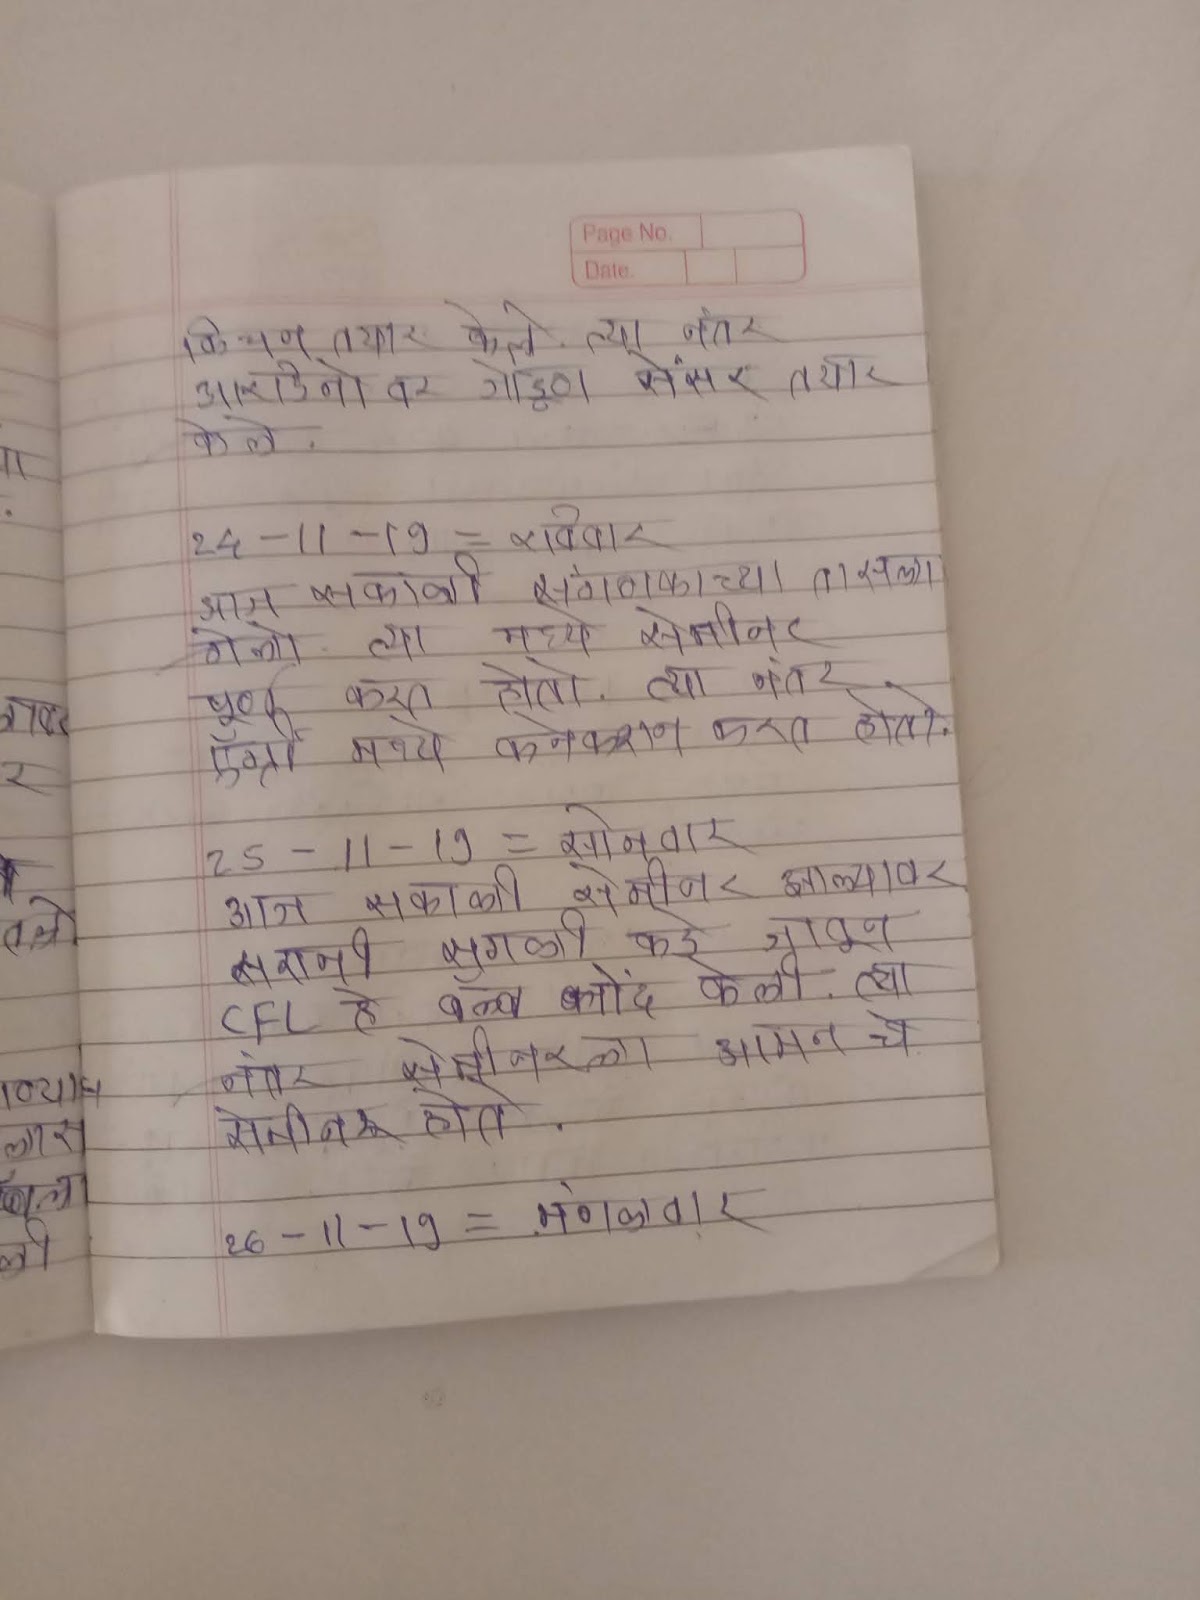 Page No.
Date.
किचन तयार केले. त्या नंतर
आरडिनो वर सेंसर तयार
केले.
24-11-19 = रविवार
आज सकाळी संगणकाच्या तासला
गेलो. त्या मध्ये सेमीनर
पूर्ण करत होतो. त्या नंतर
मध्ये कनेकशन करत होतो.
25-11-19 = सोमवार
आज सकाळी सेमीनर झाल्यावर
सरानी कडे जावून
CFL हे बल्ब नोंद केली. त्या
नंतर सेमीनरला आमन चे
सेमीनर होते.
26-11-19 = मंगळवार